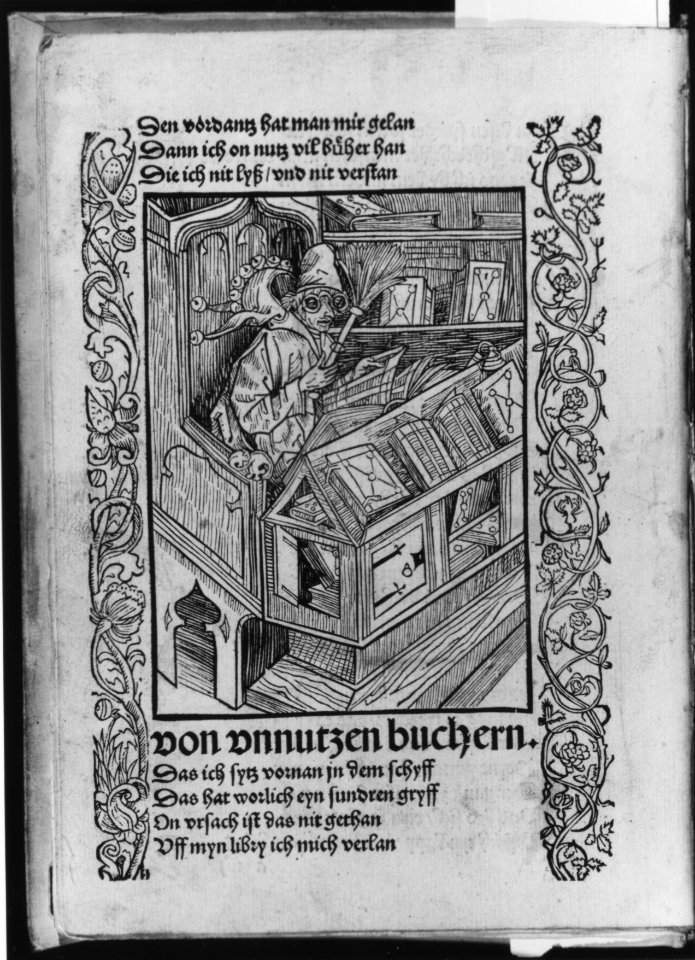 Den vordantz hat man mir gelan
Dann ich on nutz vil buͤcher han
Die ich nit lyß / vnd nit verstan
von vnnutzen buchern.
Das ich sytz vornan jn dem schyff
Das hat worlich eyn sundren gryff
On vrsach ist das nit gethan
Vff myn libry ich mich verlan